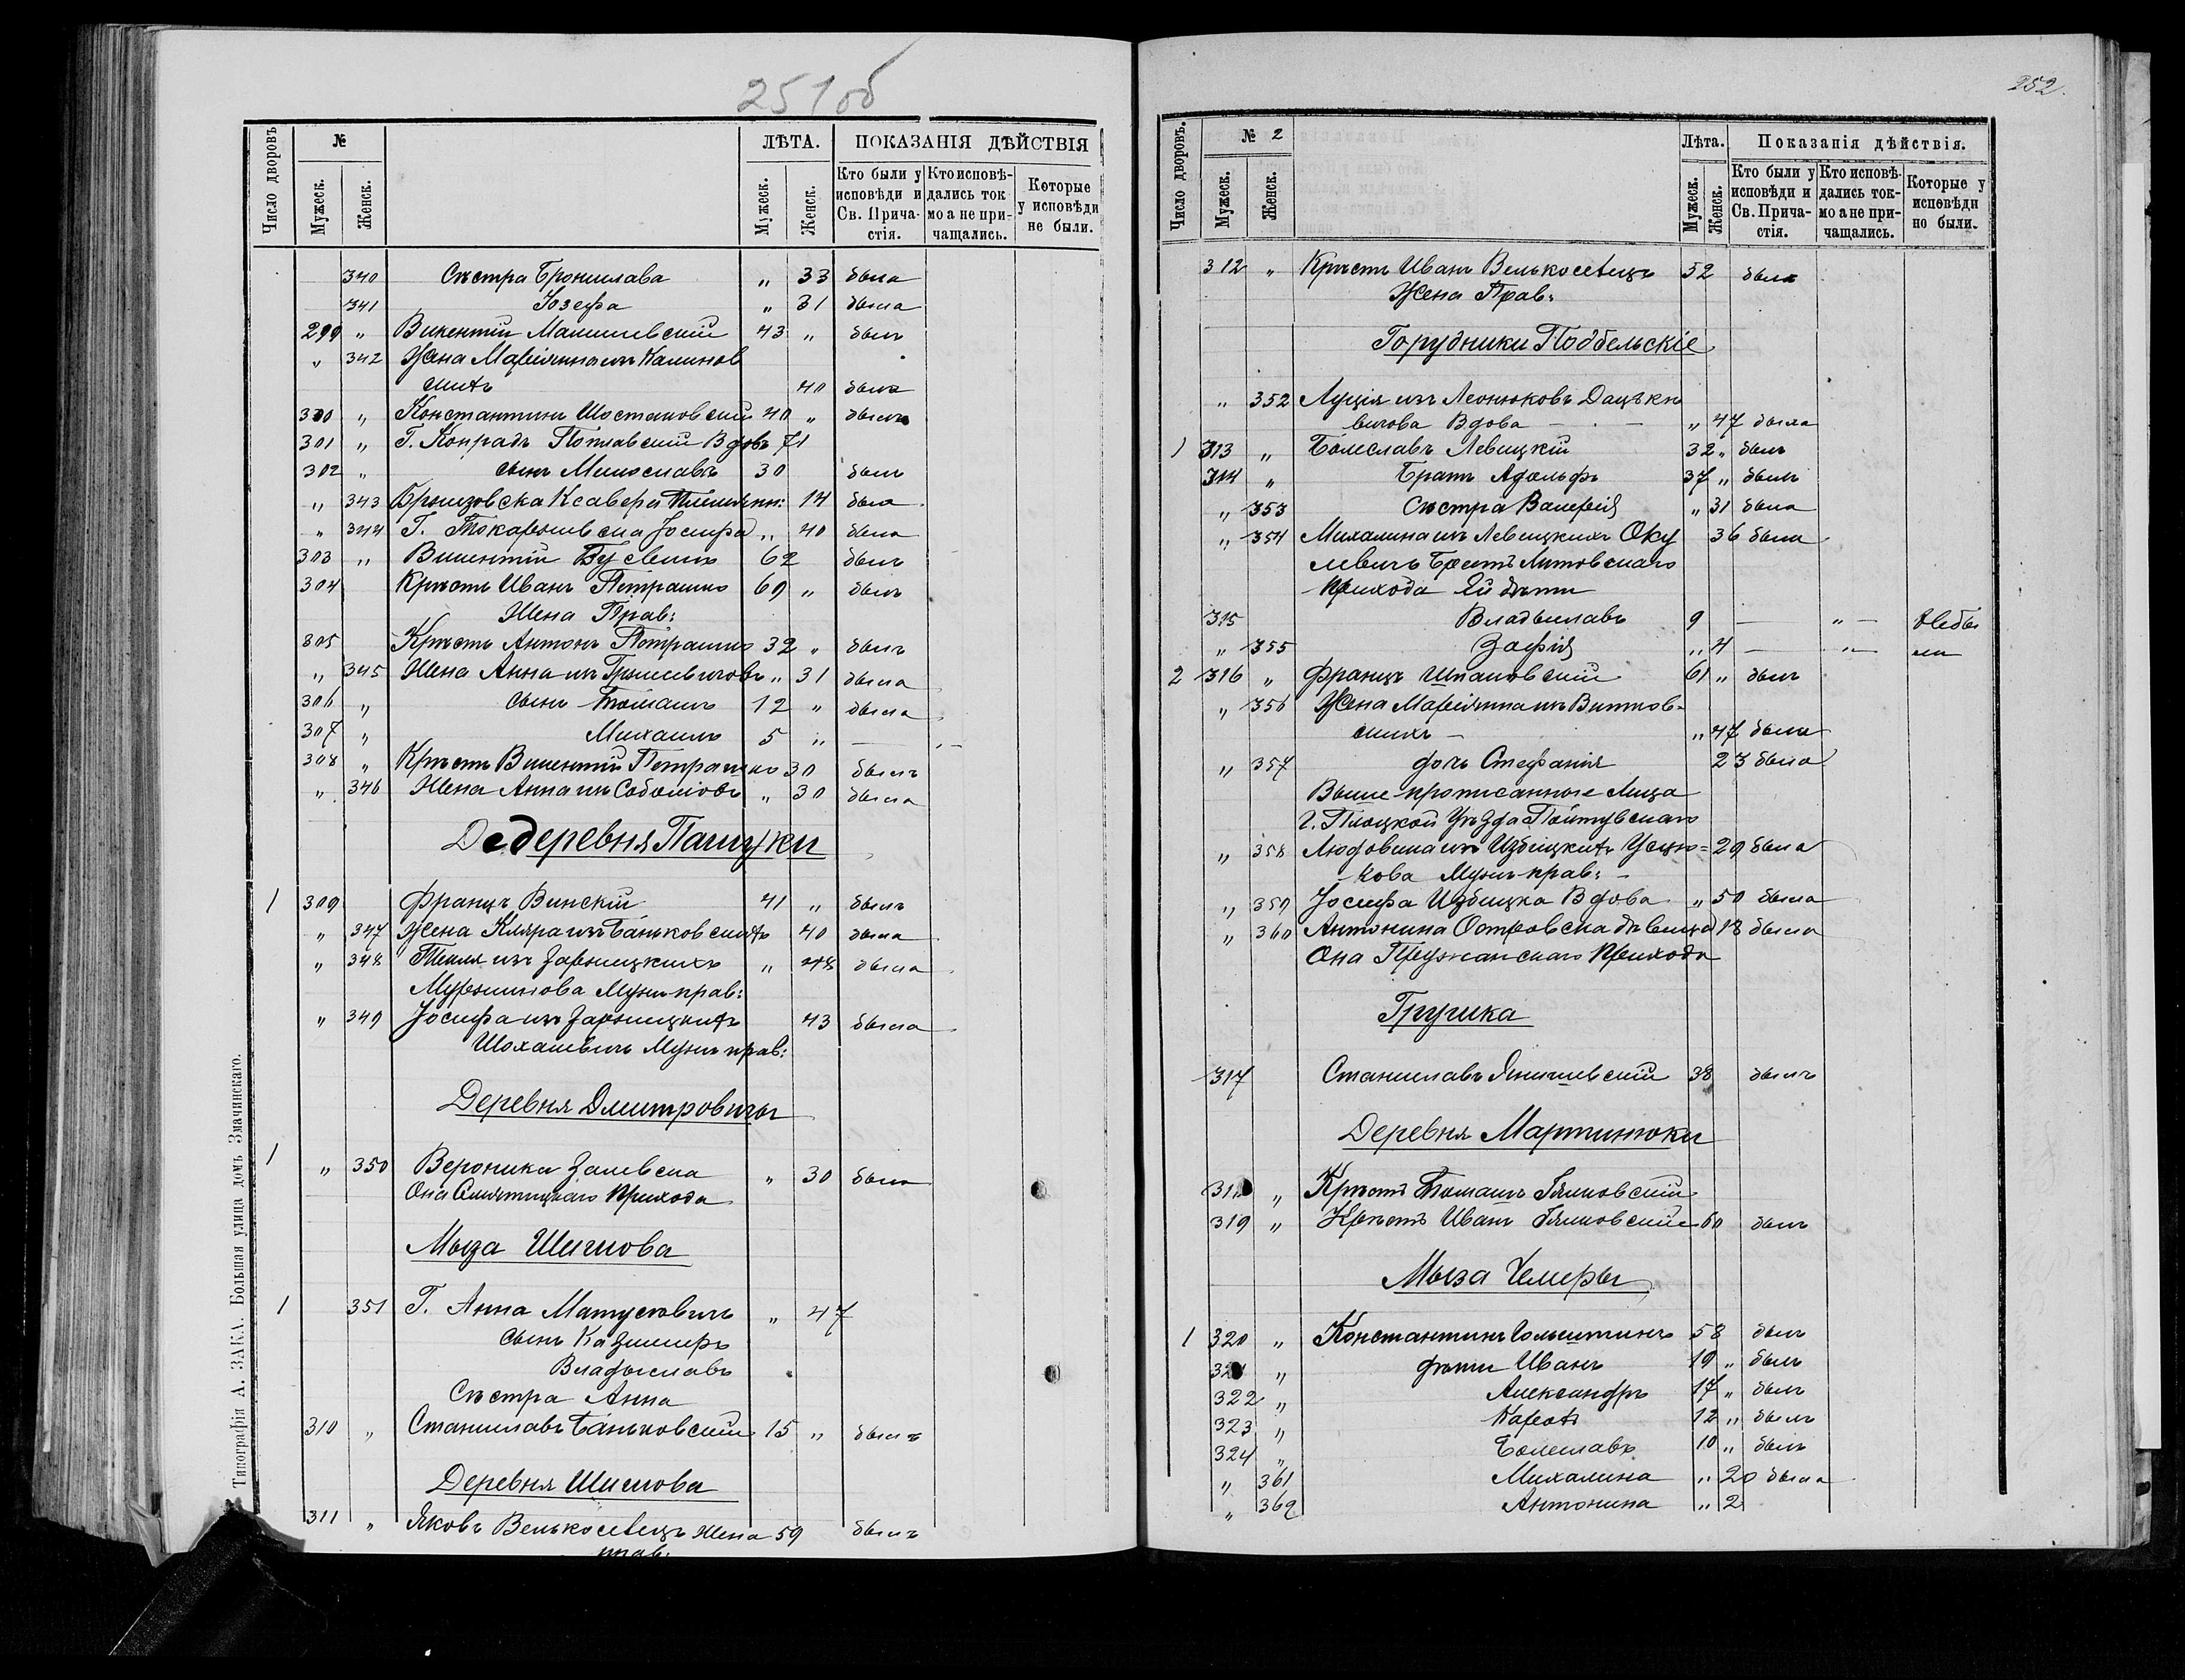 251об
Число дворовъ
№
ЛѢТА.
ПОКАЗАНІЯ ДѢЙСТВІЯ
Мужеск.
Женск.
Мужеск.
Женск.
Кто были у исповѣди и Св. Причастія.
Кто исповѣдались ток мо а не причащались.
Которые у исповѣди не были.
340 Сестра Брониславa „ 33 была
341 Юзефа „ 31 была
299 „ Викентій Малишевскій 43 „ былъ
„ 342 Жена Маріянна изъ Калинов
скихъ 40 была
300 „ Константинъ Шостаковскій 40 „ былъ
301 „ Г. Конрадъ Вдовъ 71
302 „ сынъ Мечиславъ 30 былъ
„ 343 Ксаверія 14 была
„ 344 Г. Токаржевска Іосифа „ 40 была
303 „ Викентій 62 былъ
304 Крѣст Иванъ Петрашко 69 „ былъ
Жена Прав:
305 Крѣстъ Антонъ Петрашко 32 „ былъ
„ 345 Жена Анна изъ „ 31 была
306 „ сынъ Томашъ 12 „ была
307 „ Михаилъ 5 „ — „ —
308 „ Крѣстъ Викентій Петрашко 30 былъ
„ 346 Жена Анна изъ „ 30 была
Дедеревня Пашуки
1 309 Францъ Винскій 41 „ былъ
„ 347 Жена Кляра изъ Баньковскихъ 40 была
„ 348 Текля изъ Зарницкихъ „ 48 была
Мужъ прав:
„ 349 Іосифа изъ Зарницкихъ 43 была
Шохалевичъ Мужъ прав:
Деревня Дмитровичи
1 „ 350 Вероника Залевска „ 30 была
Она Прихода
Мыза Шишова
1 351 Г. Анна Матусевичъ „ 47
сынъ Казимиръ
Владыславъ
Сестра Анна
310 „ Станиславъ Баньковскій 15 „ былъ
Деревня Шишова
311 „ Яковъ Велькоселецъ жена 59 былъ
прав:
Типографія А. ЗАКА. Большая улица домъ Значинскаго.
252.
Число дворовъ.
№ 2
Лѣта.
Показанія дѣйствія.
Мужеск.
Женск.
Мужеск.
Женск.
Кто были у исповѣди и Св. Причастія.
Кто исповѣдались токмо а не причащались.
Которые у исповѣди но были.
312 „ Крѣстъ Иванъ Велькоселецъ 52 былъ
Жена Прав:
Горудники Подбельскіе
„ 352 Луція изъ Леонюковъ Дацьке
вичова Вдова — „ 47 была
1 313 „ Болеславъ Левицкій 32 „ былъ
314 „ Братъ Адольфъ 37 „ былъ
„ 353 Сестра Валерія „ 31 была
„ 354 Михалина изъ Левицкихъ Оку 36 была
левичъ Брестъ Литовскаго
прихода Ей дѣти
315 Владыславъ 9 — „ — Небы
„ 355 Зофія „ 4 — „ — ли
2 316 „ Францъ Шпаковскій 61 „ былъ
„ 356 Жена Маріянна изъ Витков-
скихъ — „ 47 была
„ 357 дочь Стефанія 23 была
Выше прописанные Лица
Г. Плоцкой Уѣзда
„ 358 Людовика изъ Избицкихъ 29 была
кова Мужъ прав:
„ 359 Іосифа Избицка Вдова „ 50 была
„ 360 Антонина Островска дѣвица 18 была
Она Пружанскаго Прихода
Грушка
317 Станиславъ Янишевскій 38 былъ
Деревня Мартинюки
„ Крѣстъ Томашъ Гямковскій
319 „ Крѣстъ Иванъ Гямковскій 60 былъ
Мыза Чемеры
1 320 „ Константинъ Гольштинъ 58 былъ
„ дѣти Иванъ 19 „ былъ
322 „ Александръ 17 „ былъ
323 „ Кароль 12 „ былъ
324 „ Болеславъ 10 „ былъ
„ 361 Михалина „ 20 была
„ 362 Антонина „ 2